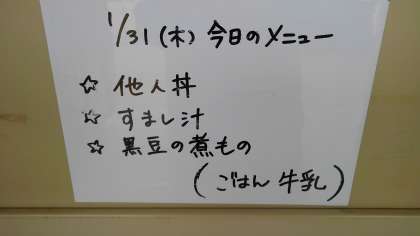 1/31(木) 今日のメニュー
☆ 他人丼
☆ すまし汁
☆ 黒豆の煮もの
(ごはん 牛乳)